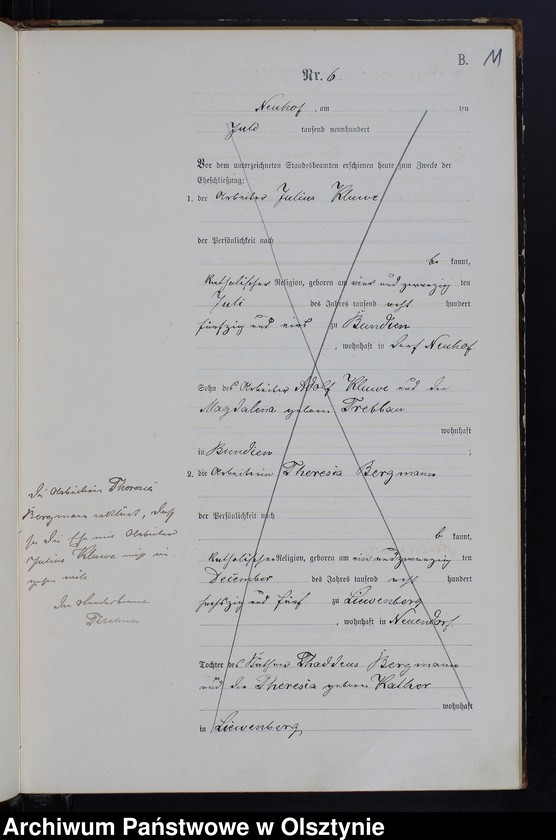 B. 11
Nr. 6
Neuhof, am ten
Juli tausend neunhundert
Vor dem unterzeichneten Standesbeamten erschienen heute zum Zwecke der
Eheschließung:
1. der Arbeiter Julius Kluwe
der Persönlichkeit nach
be kannt,
katholischer Religion, geboren am vier und zwanzig ten
Juli des Jahres tausend acht hundert
fünfzig und eins zu Bundien
, wohnhaft in Dorf Neuhof
Sohn des Arbeiter Adolf Kluwe und der
Magdalena geboren Trebbau
wohnhaft
in Bundien ;
2. die Arbeiterin Theresia Bergmann
der Persönlichkeit nach
be kannt,
katholischer Religion, geboren am ein und zwanzig ten
Dezember des Jahres tausend acht hundert
sechszig und fünf zu Liewenberg
, wohnhaft in Neuendorf
Tochter des Käthner Thaddeus Bergmann
und der Theresia geboren Kather
wohnhaft
in Liewenberg
Die Arbeiterin Theresia
Bergmann erklärt, daß
sie die Ehe mit Arbeiter
Julius Kluwe nicht ein
gehen will.
Der Standesbeamte
Archiwum Państwowe w Olsztynie